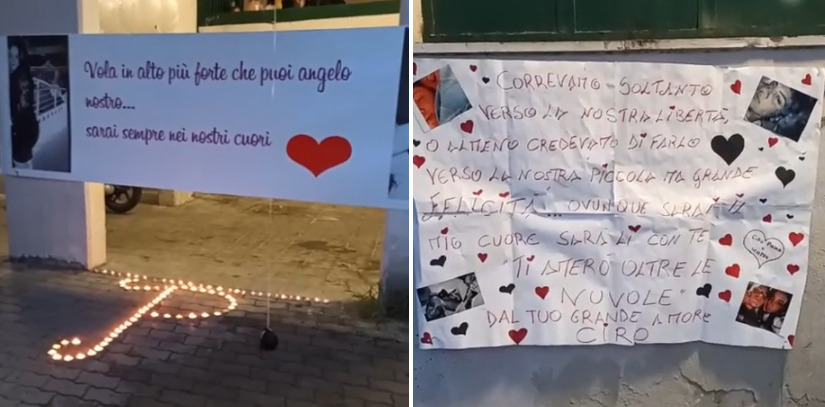 Vola in alto più forte che puoi angelo
nostro...
sarai sempre nei nostri cuori
CORREVAMO SOLTANTO
VERSO LA NOSTRA LIBERTÀ,
O ALMENO CREDEVAMO DI FARLO
VERSO LA NOSTRA PICCOLA MA GRANDE
FELICITÀ... OVUNQUE SARAI IL
MIO CUORE SARÀ LÌ CON TE
"TI AMERÒ OLTRE LE
NUVOLE"
DAL TUO GRANDE AMORE
CIRO